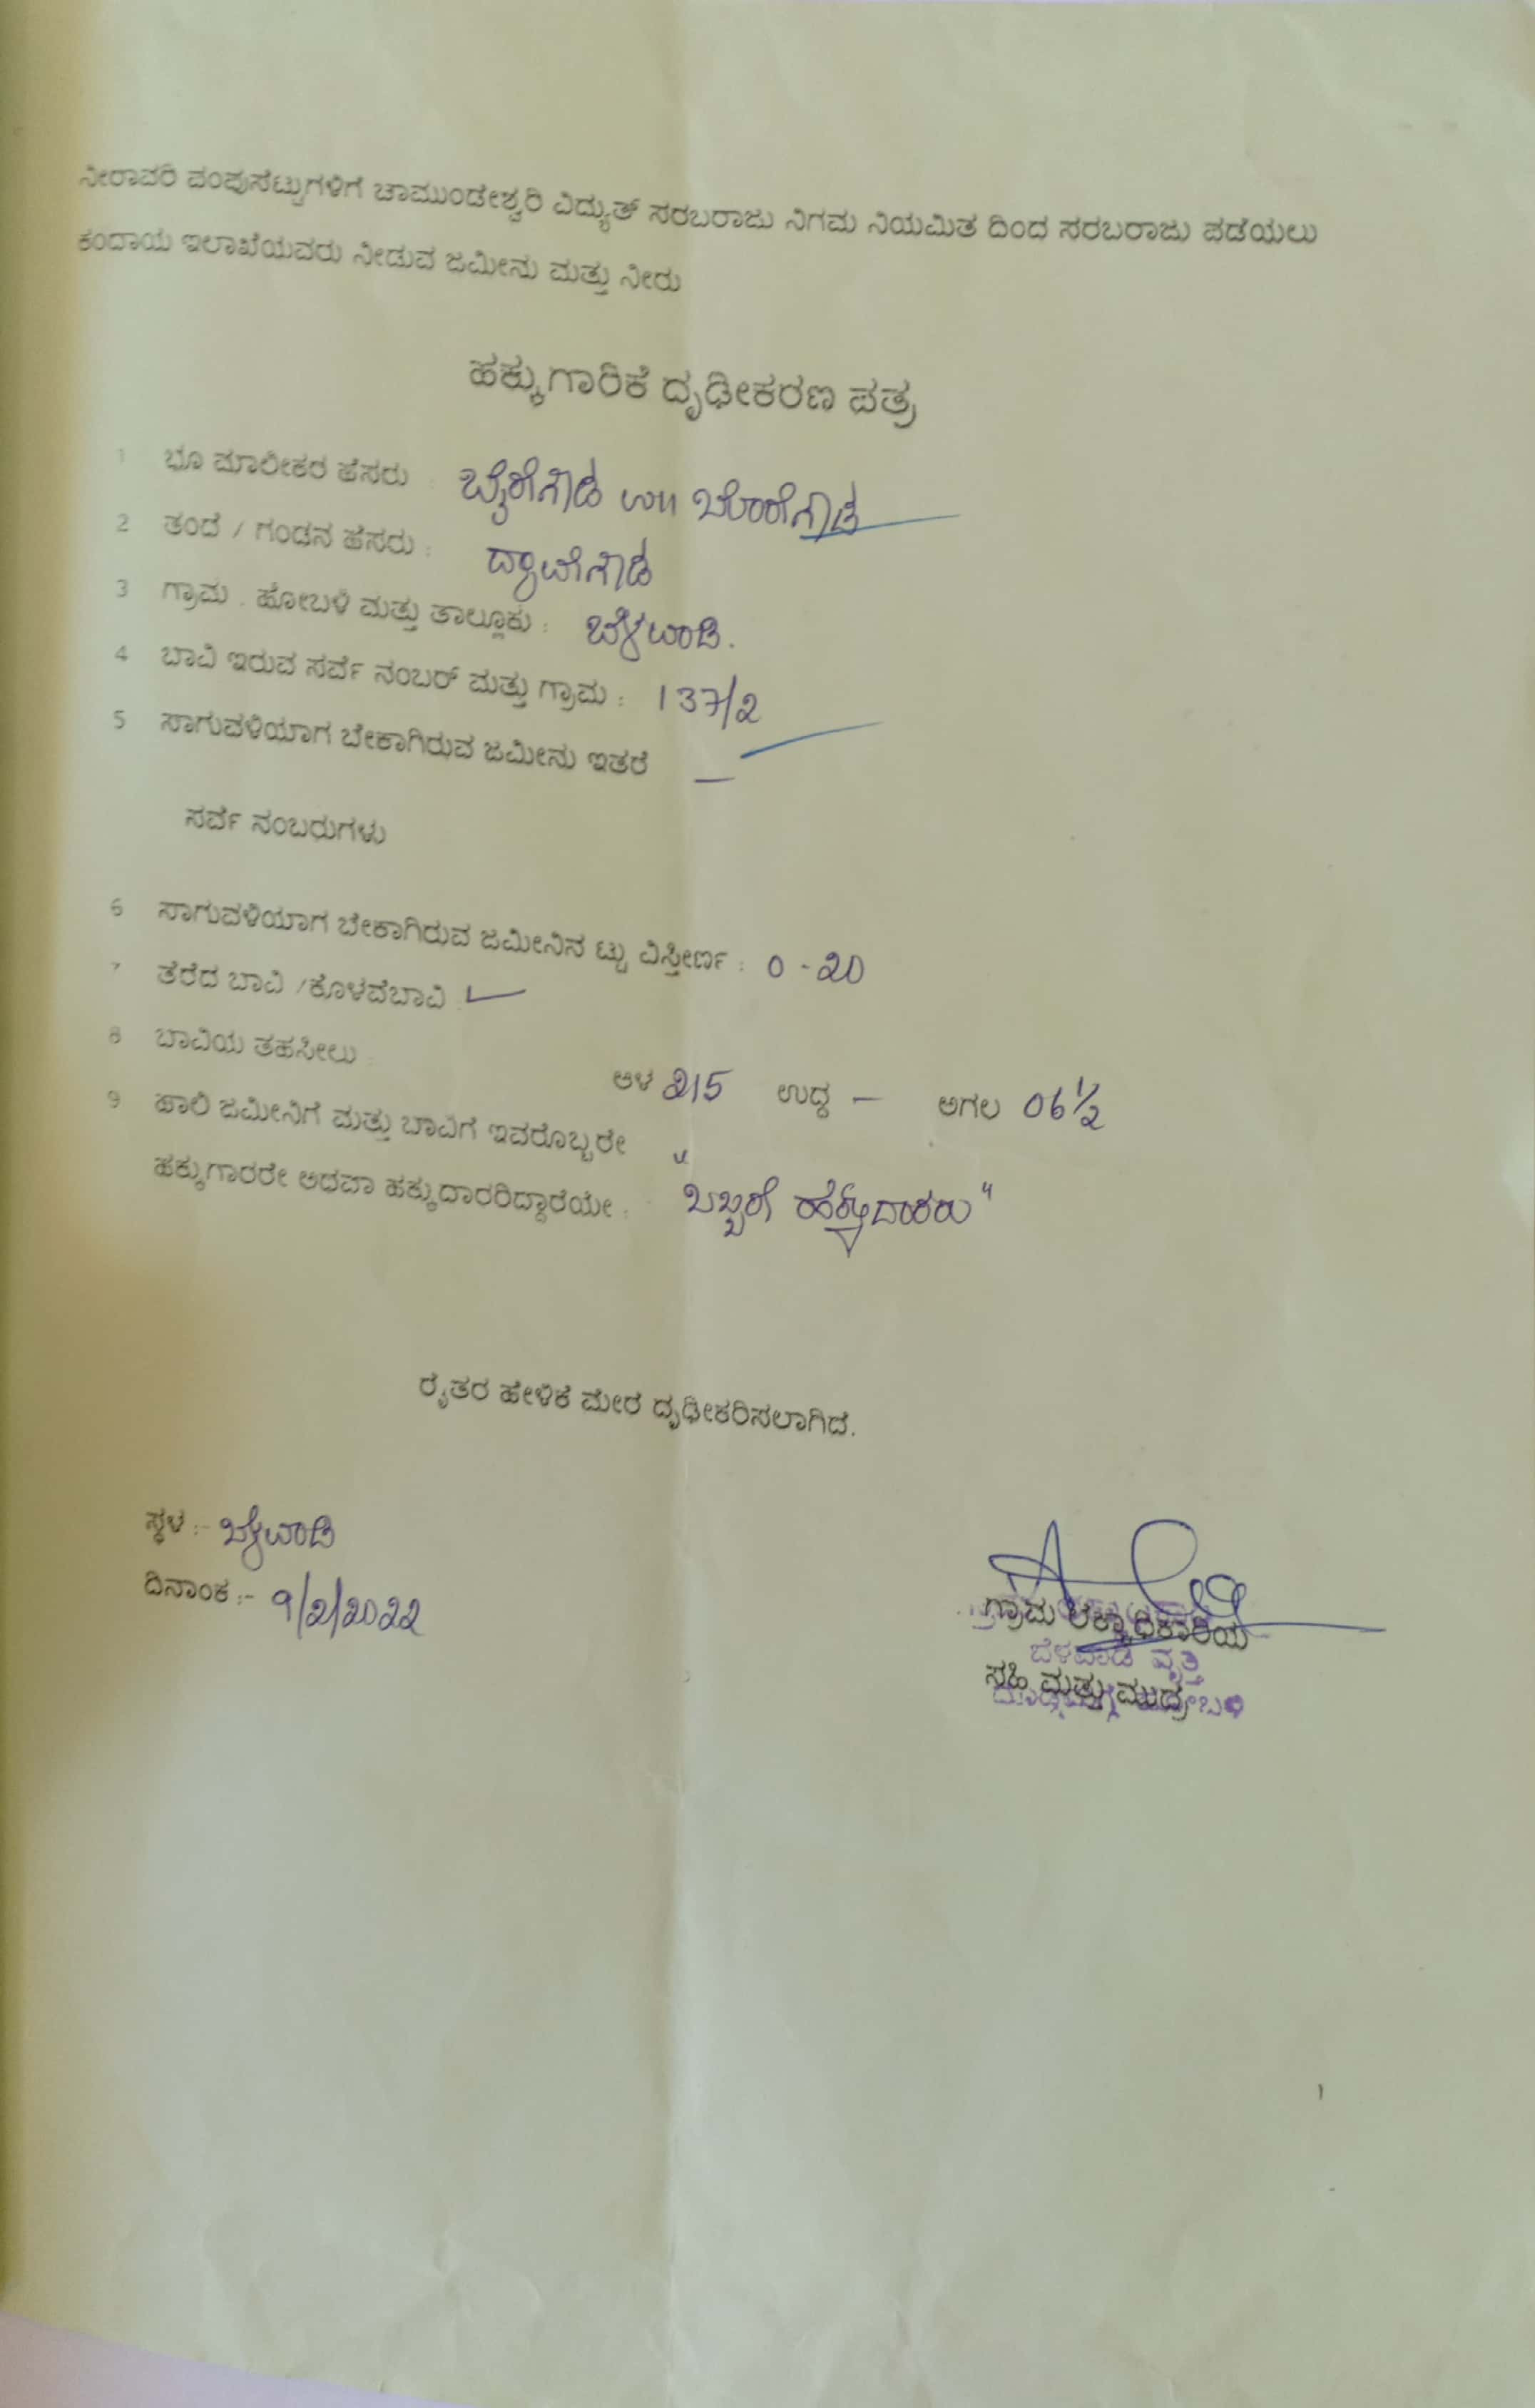 ನೀರಾವರಿ ಪಂಪುಸೆಟ್ಟುಗಳಿಗೆ ಚಾಮುಂಡೇಶ್ವರಿ ವಿದ್ಯುತ್ ಸರಬರಾಜು ನಿಗಮ ನಿಯಮಿತ ದಿಂದ ಸರಬರಾಜು ಪಡೆಯಲು
ಕಂದಾಯ ಇಲಾಖೆಯವರು ನೀಡುವ ಜಮೀನು ಮತ್ತು ನೀರು
ಹಕ್ಕುಗಾರಿಕೆ ದೃಢೀಕರಣ ಪತ್ರ
1 ಭೂ ಮಾಲೀಕರ ಹೆಸರು : ಬೈರೇಗೌಡ ಉ॥ ಬೋರೇಗೌಡ
2 ತಂದೆ / ಗಂಡನ ಹೆಸರು : ದ್ಯಾವೇಗೌಡ
3 ಗ್ರಾಮ . ಹೋಬಳಿ ಮತ್ತು ತಾಲ್ಲೂಕು : ಬೆಳವಾಡಿ.
4 ಬಾವಿ ಇರುವ ಸರ್ವೆ ನಂಬರ್ ಮತ್ತು ಗ್ರಾಮ : 137/2
5 ಸಾಗುವಳಿಯಾಗ ಬೇಕಾಗಿರುವ ಜಮೀನು ಇತರೆ —
ಸರ್ವೆ ನಂಬರುಗಳು
6 ಸಾಗುವಳಿಯಾಗ ಬೇಕಾಗಿರುವ ಜಮೀನಿನ ಟ್ಟು ವಿಸ್ತೀರ್ಣ : 0 - 20
7 ತೆರೆದ ಬಾವಿ /ಕೊಳವೆಬಾವಿ :
8 ಬಾವಿಯ ತಹಸೀಲು :
ಆಳ 215 ಉದ್ದ — ಅಗಲ 06 1/2
9 ಹಾಲಿ ಜಮೀನಿಗೆ ಮತ್ತು ಬಾವಿಗೆ ಇವರೊಬ್ಬರೇ
ಹಕ್ಕುಗಾರರೇ ಅಥವಾ ಹಕ್ಕುದಾರರಿದ್ದಾರೆಯೇ : "ಒಬ್ಬರೇ ಹಕ್ಕುದಾರರು"
ರೈತರ ಹೇಳಿಕೆ ಮೇರೆ ದೃಢೀಕರಿಸಲಾಗಿದೆ.
ಸ್ಥಳ :- ಬೆಳವಾಡಿ
ದಿನಾಂಕ :- 9/2/2022
ಗ್ರಾಮ ಲೆಕ್ಕಾಧಿಕಾರಿಯ
ಬೆಳವಾಡಿ ವೃತ್ತ
ಸಹಿ ಮತ್ತು ಮುದ್ರೆ